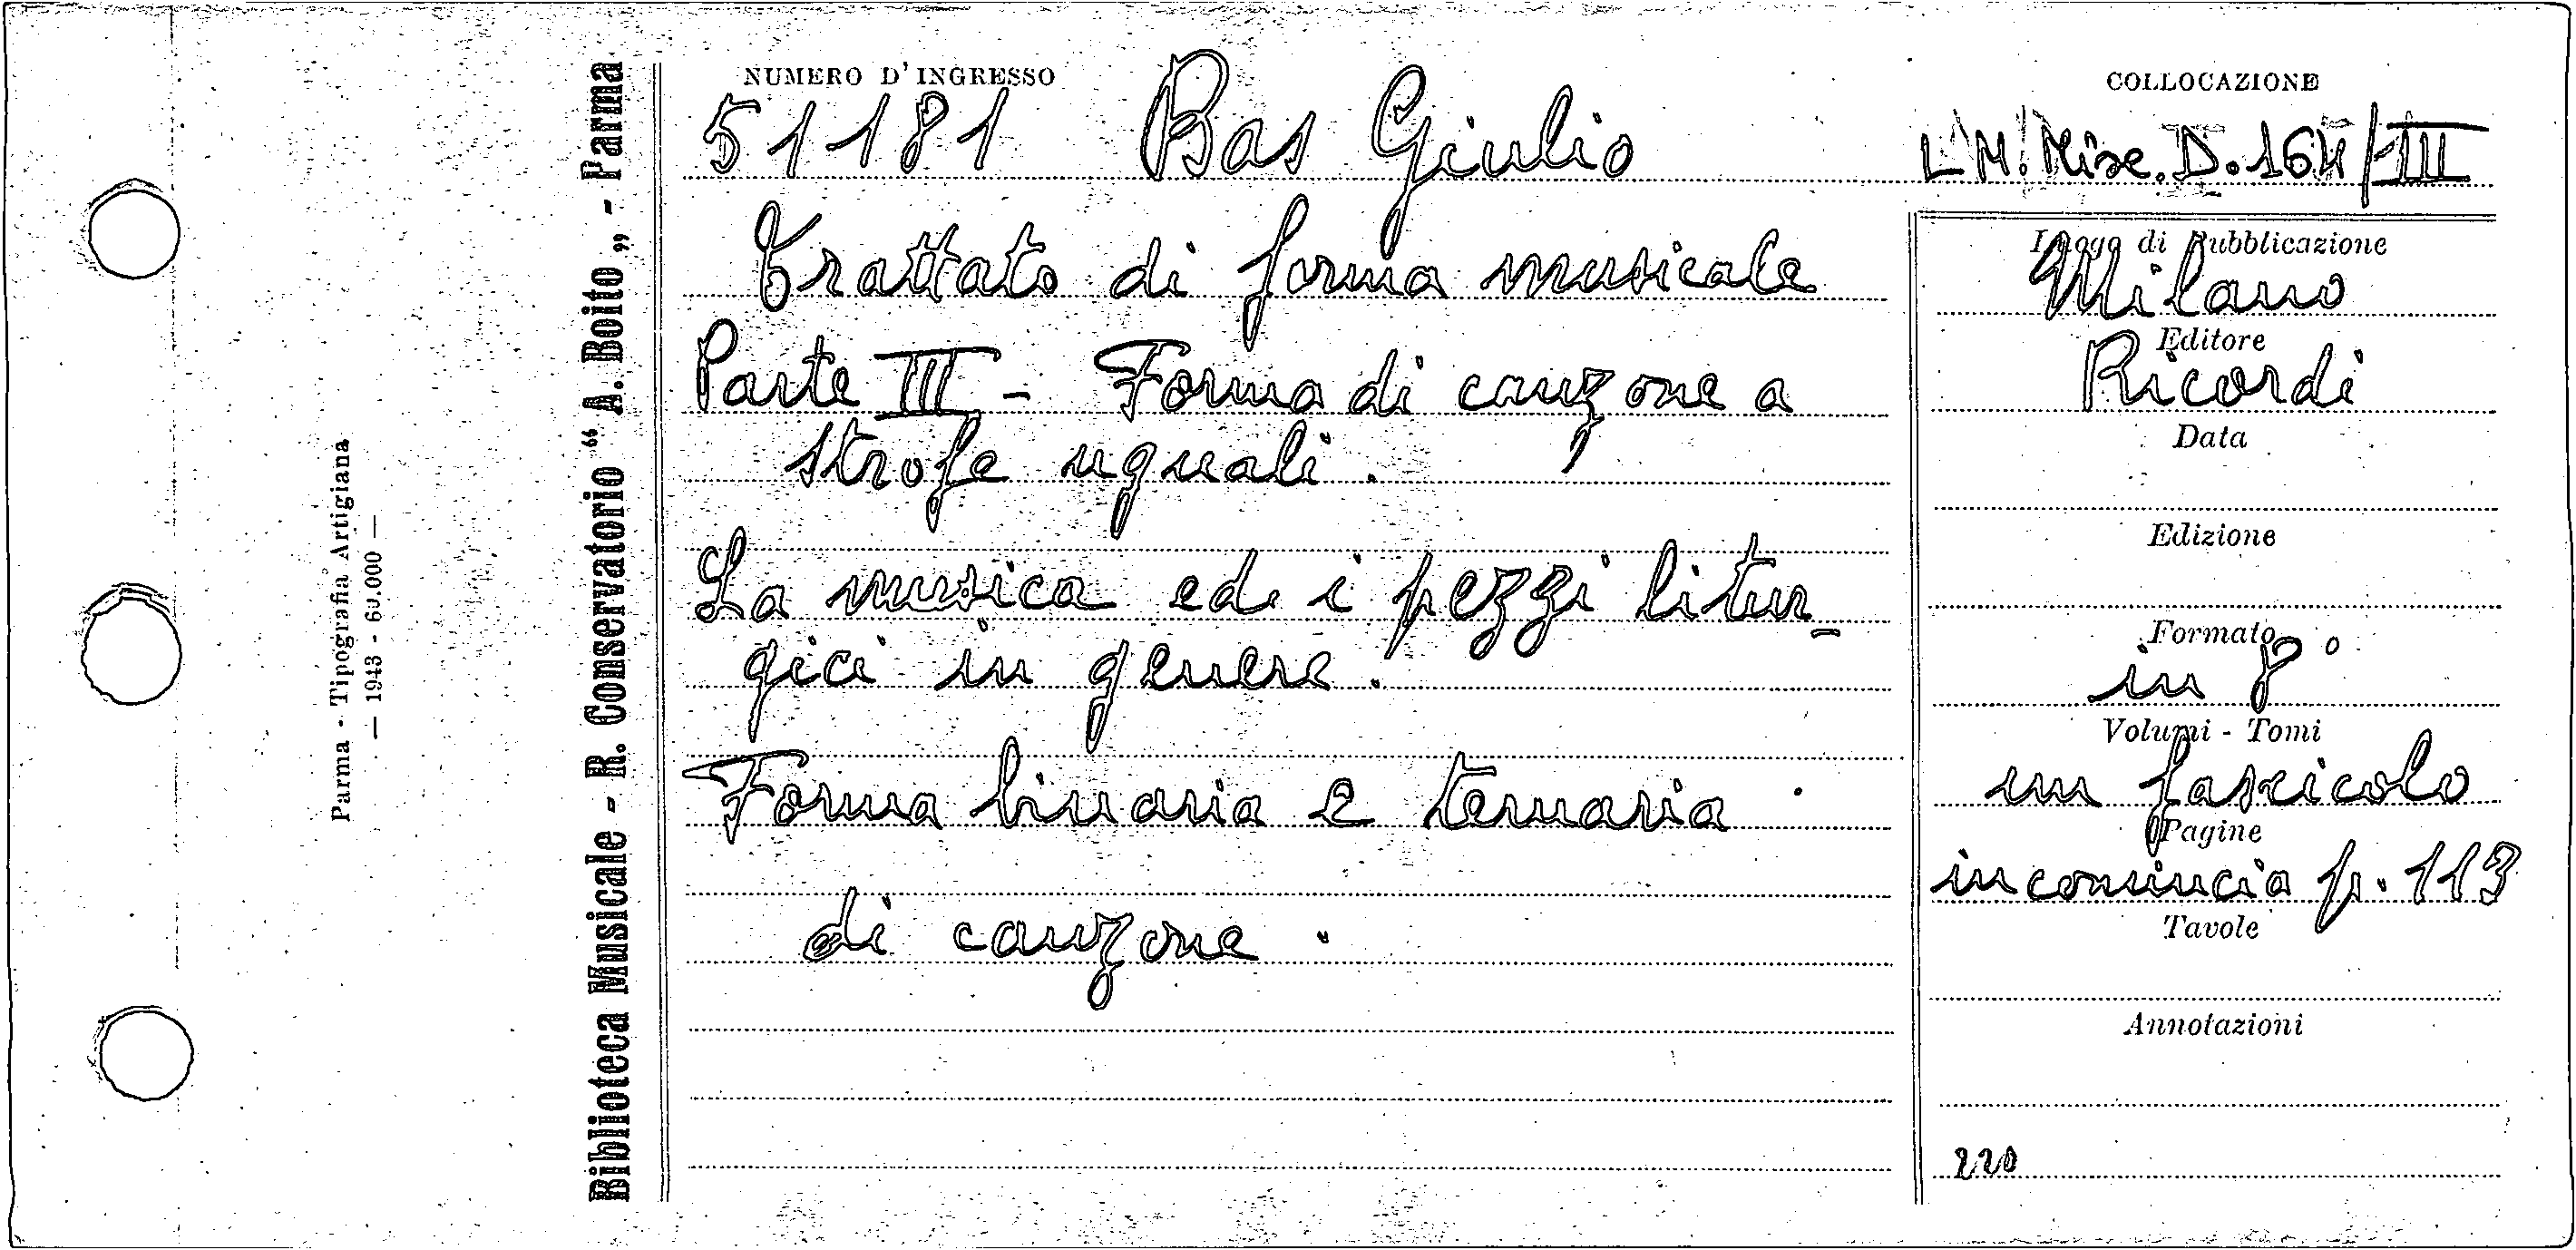 Parma - Tipografia Artigiana
— 1943 - 60.000 —
Biblioteca Musicale - R. Conservatorio “ A. Boito „ - Parma
NUMERO D'INGRESSO
51181 Bas Giulio
Trattato di forma musicale
Parte III - Forma di canzone a
strofe uguali.
La musica ed i pezzi litur-
gici in genere.
Forma binaria e ternaria
di canzone.
COLLOCAZIONE
L M. Misc. D. 164/III
Luogo di Pubblicazione
Milano
Editore
Ricordi
Data
Edizione
Formato
in 8°
Volumi - Tomi
un fascicolo
Pagine
incomincia p. 113
Tavole
Annotazioni
220